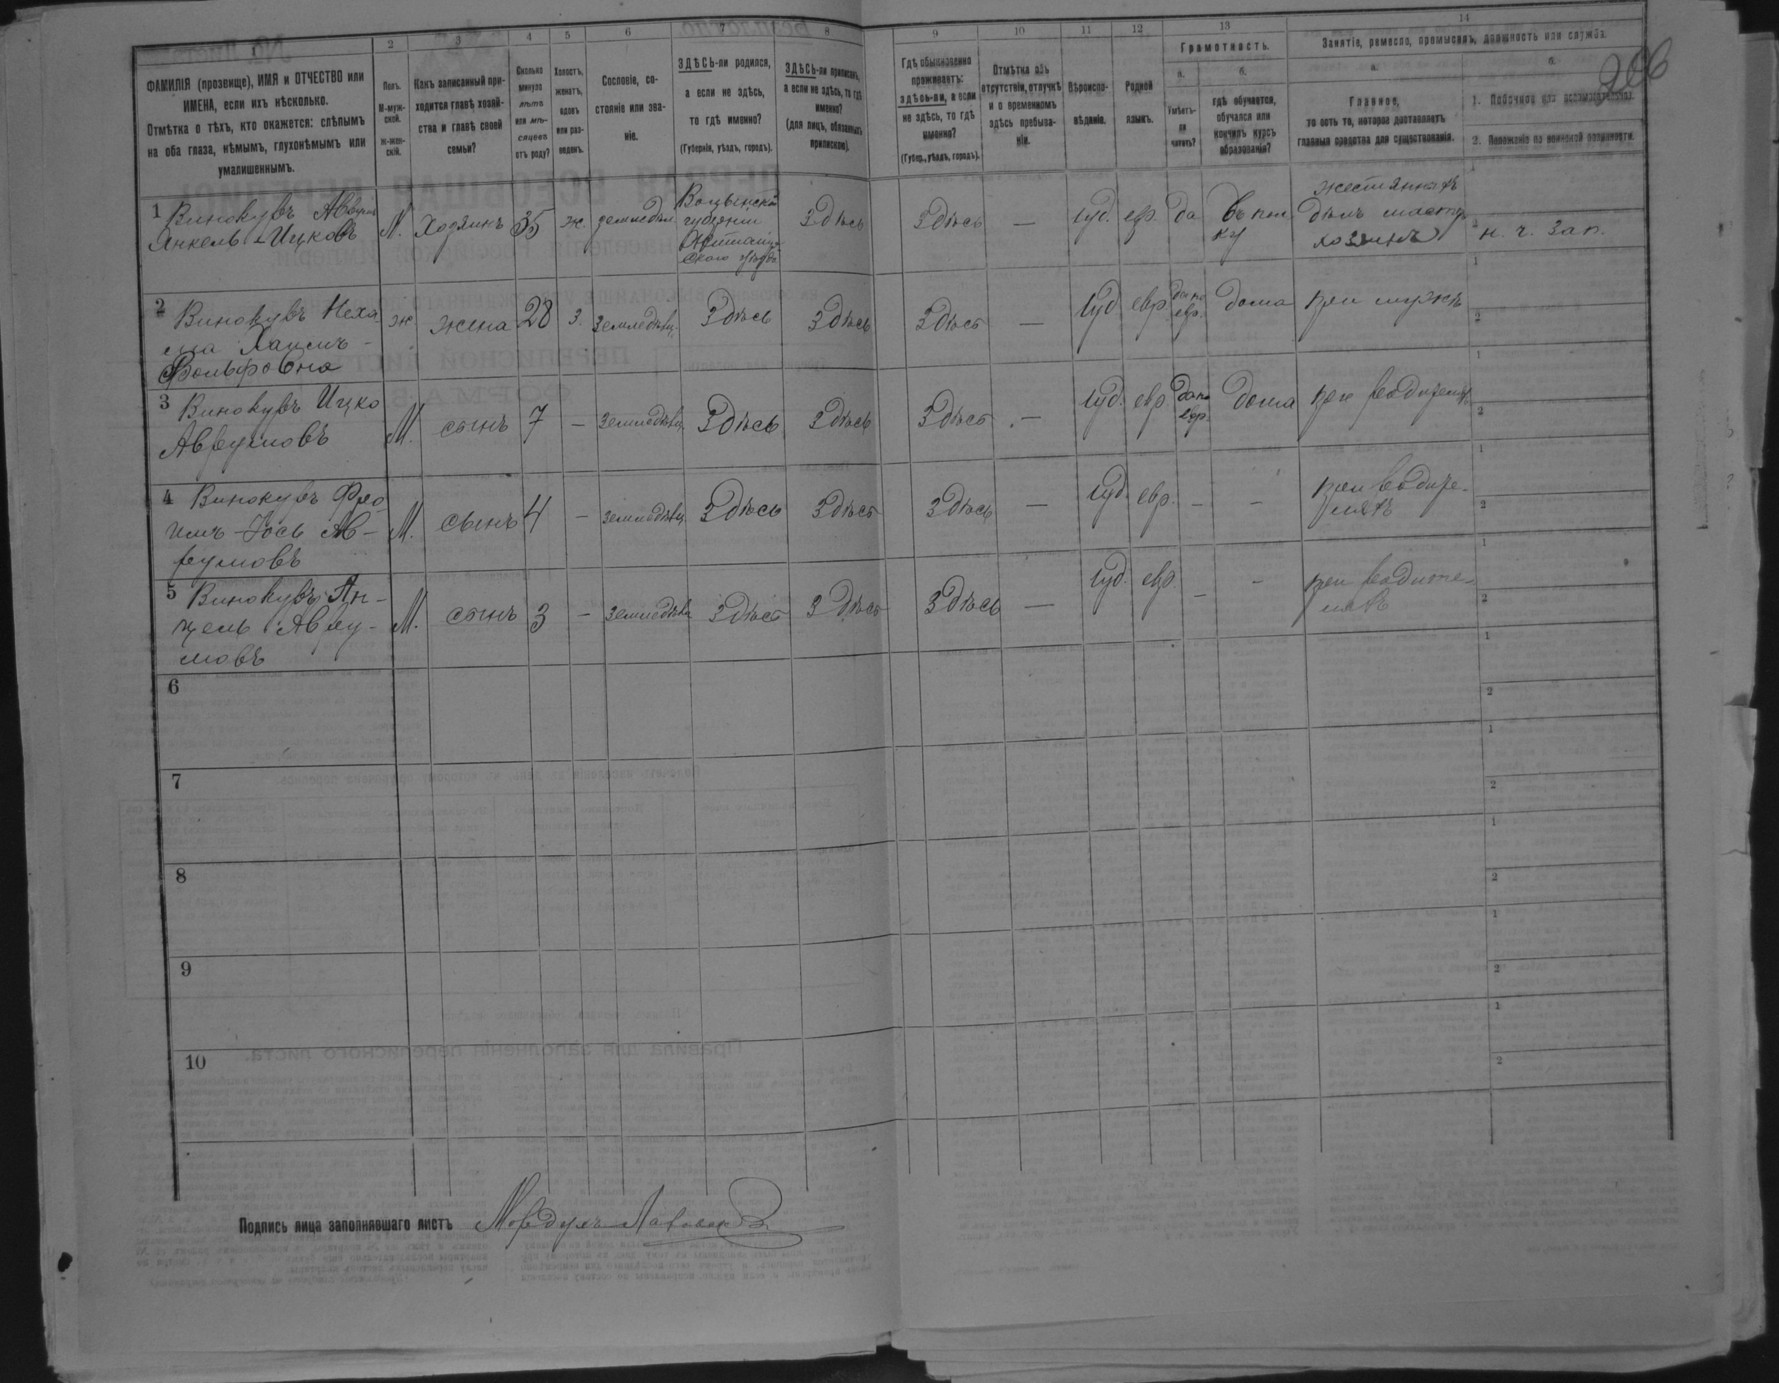 206
1 2 3 4 5 6 7 8 9 10 11 12 13 14
ФАМИЛІЯ (прозвище), ИМЯ и ОТЧЕСТВО или
ИМЕНА, если ихъ нѣсколько.
Отмѣтка о тѣхъ, кто окажется: слѣпымъ
на оба глаза, нѣмымъ, глухонѣмымъ или
умалишеннымъ.
Полъ.
М-муж-
ской.
Ж-жен-
скій.
Какъ записанный при-
ходится главѣ хозяй-
ства и главѣ своей
семьи?
Сколько
минуло
лѣтъ
или мѣ-
сяцевъ
отъ роду?
Холостъ,
женатъ,
вдовъ
или раз-
веденъ.
Сословіе, со-
стояніе или зва-
ніе.
ЗДѢСЬ-ли родился,
а если не здѣсь,
то гдѣ именно?
(Губернія, уѣздъ, городъ).
ЗДѢСЬ-ли приписанъ,
а если не здѣсь, то гдѣ
именно?
(для лицъ, обязанныхъ
припискою).
Гдѣ обыкновенно
проживаетъ:
здѣсь-ли, а если
не здѣсь, то гдѣ
именно?
(Губер., уѣздъ, городъ).
Отмѣтка объ
отсутствіи, отлучкѣ
и о временномъ
здѣсь пребыва-
ніи.
Вѣроиспо-
вѣданіе.
Родной
языкъ.
Грамотность.
а.
Умѣетъ-
ли
читать?
б.
гдѣ обучается,
обучался или
кончилъ курсъ
образованія?
Занятіе, ремесло, промыселъ, должность или служба.
а.
Главное,
то есть то, которое доставляетъ
главныя средства для существованія.
б.
1. Побочное или вспомогательное.
2. Положеніе по воинской повинности.
1 Винокуръ Аврумъ
Янкель Ицковъ
М. Хозяинъ 35 ж. землед.
Волынской
губерніи
уѣзда
Здѣсь Здѣсь — іуд. евр. да
жестянникъ
хозяинъ
н. ч. зап.
2 Винокуръ Неха
Вольфовна
ж жена 28 з. земледѣлец. Здѣсь Здѣсь Здѣсь — іуд евр. да по
евр. дома при мужѣ
3 Винокуръ Ицко
Аврумовъ
М. сынъ 7 — земледѣлец Здѣсь Здѣсь Здѣсь — іуд. евр да по
евр. дома при родителяхъ
4 Винокуръ Фро
имъ-Іось Ав-
румовъ
М. сынъ 4 — земледѣлец Здѣсь Здѣсь Здѣсь — іуд. евр. — — при родите-
ляхъ
5 Винокуръ Ан-
чель Авру-
мовъ
М. сынъ 3 — земледѣлец Здѣсь Здѣсь Здѣсь — іуд. евр. — — при родите-
ляхъ
6
7
8
9
10
Подпись лица заполнявшаго листъ